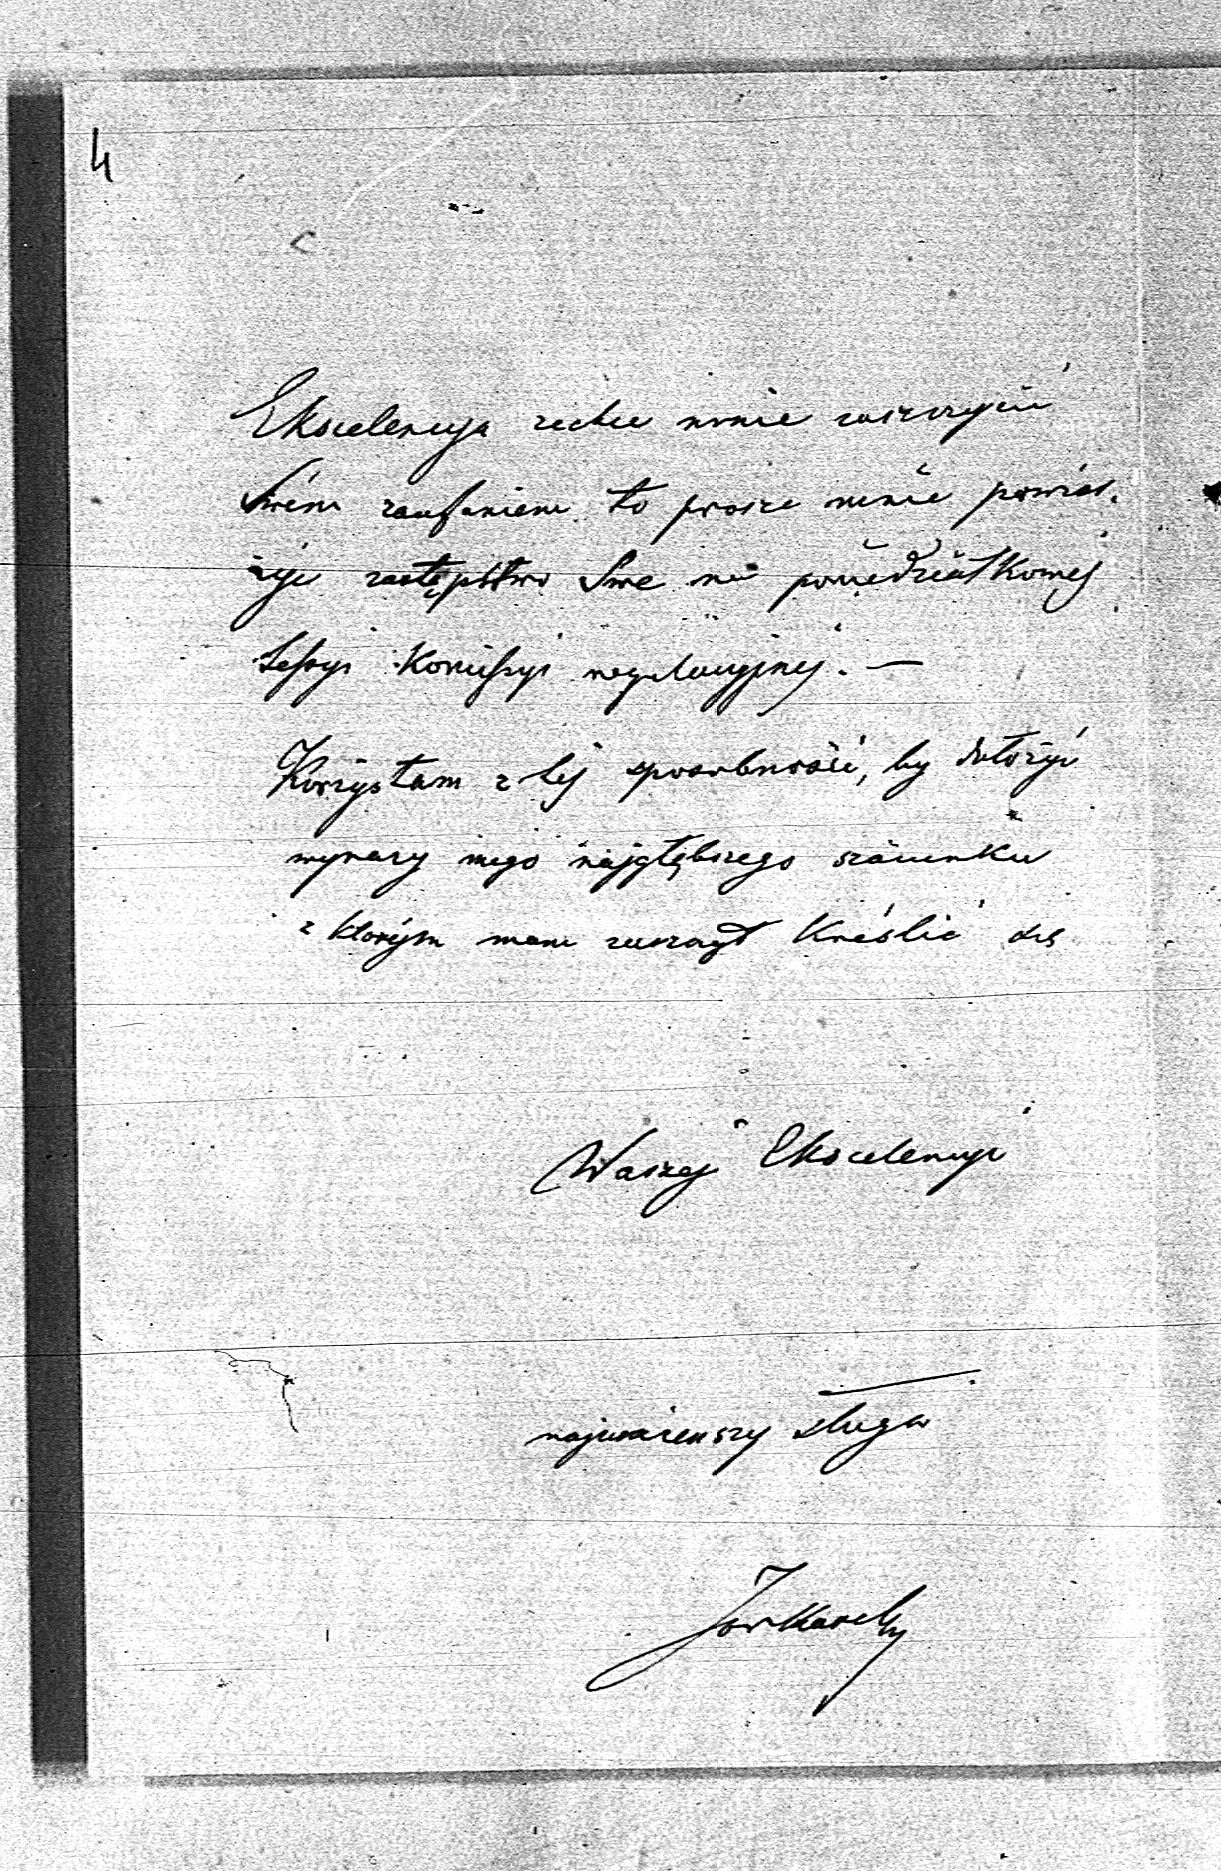 4
Ekscelencyja zechce mnie zaszczycić
Swém zaufaniem to proszę mnie powie-
rzyć zastępstwo Swe na poniedziałkowej
Sessyi Komissyi regulacyjnej. —
Korzystam z tej sposobności, by złożyć
wyrazy mego najgłębszego szacunku
z którym mam zaszczyt kréślić się
Waszej Ekscelencyi
najuniżeńszy sługa